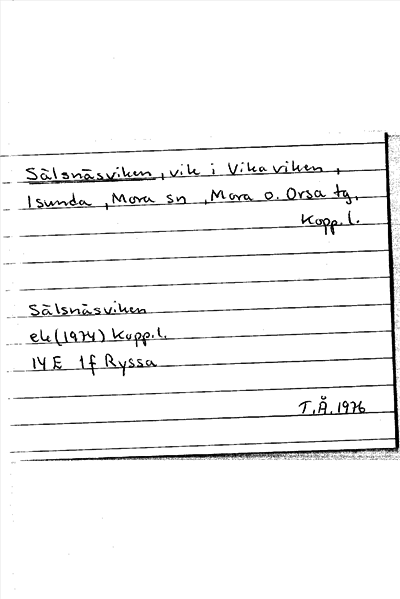 Sälsnäsviken, vik i Vikaviken,
Isunda, Mora sn, Mora o. Orsa tg,
Kopp. l.
Sälsnäsviken
ek (1974) Kopp. l.
14 E 1f Ryssa
T. Å. 1976